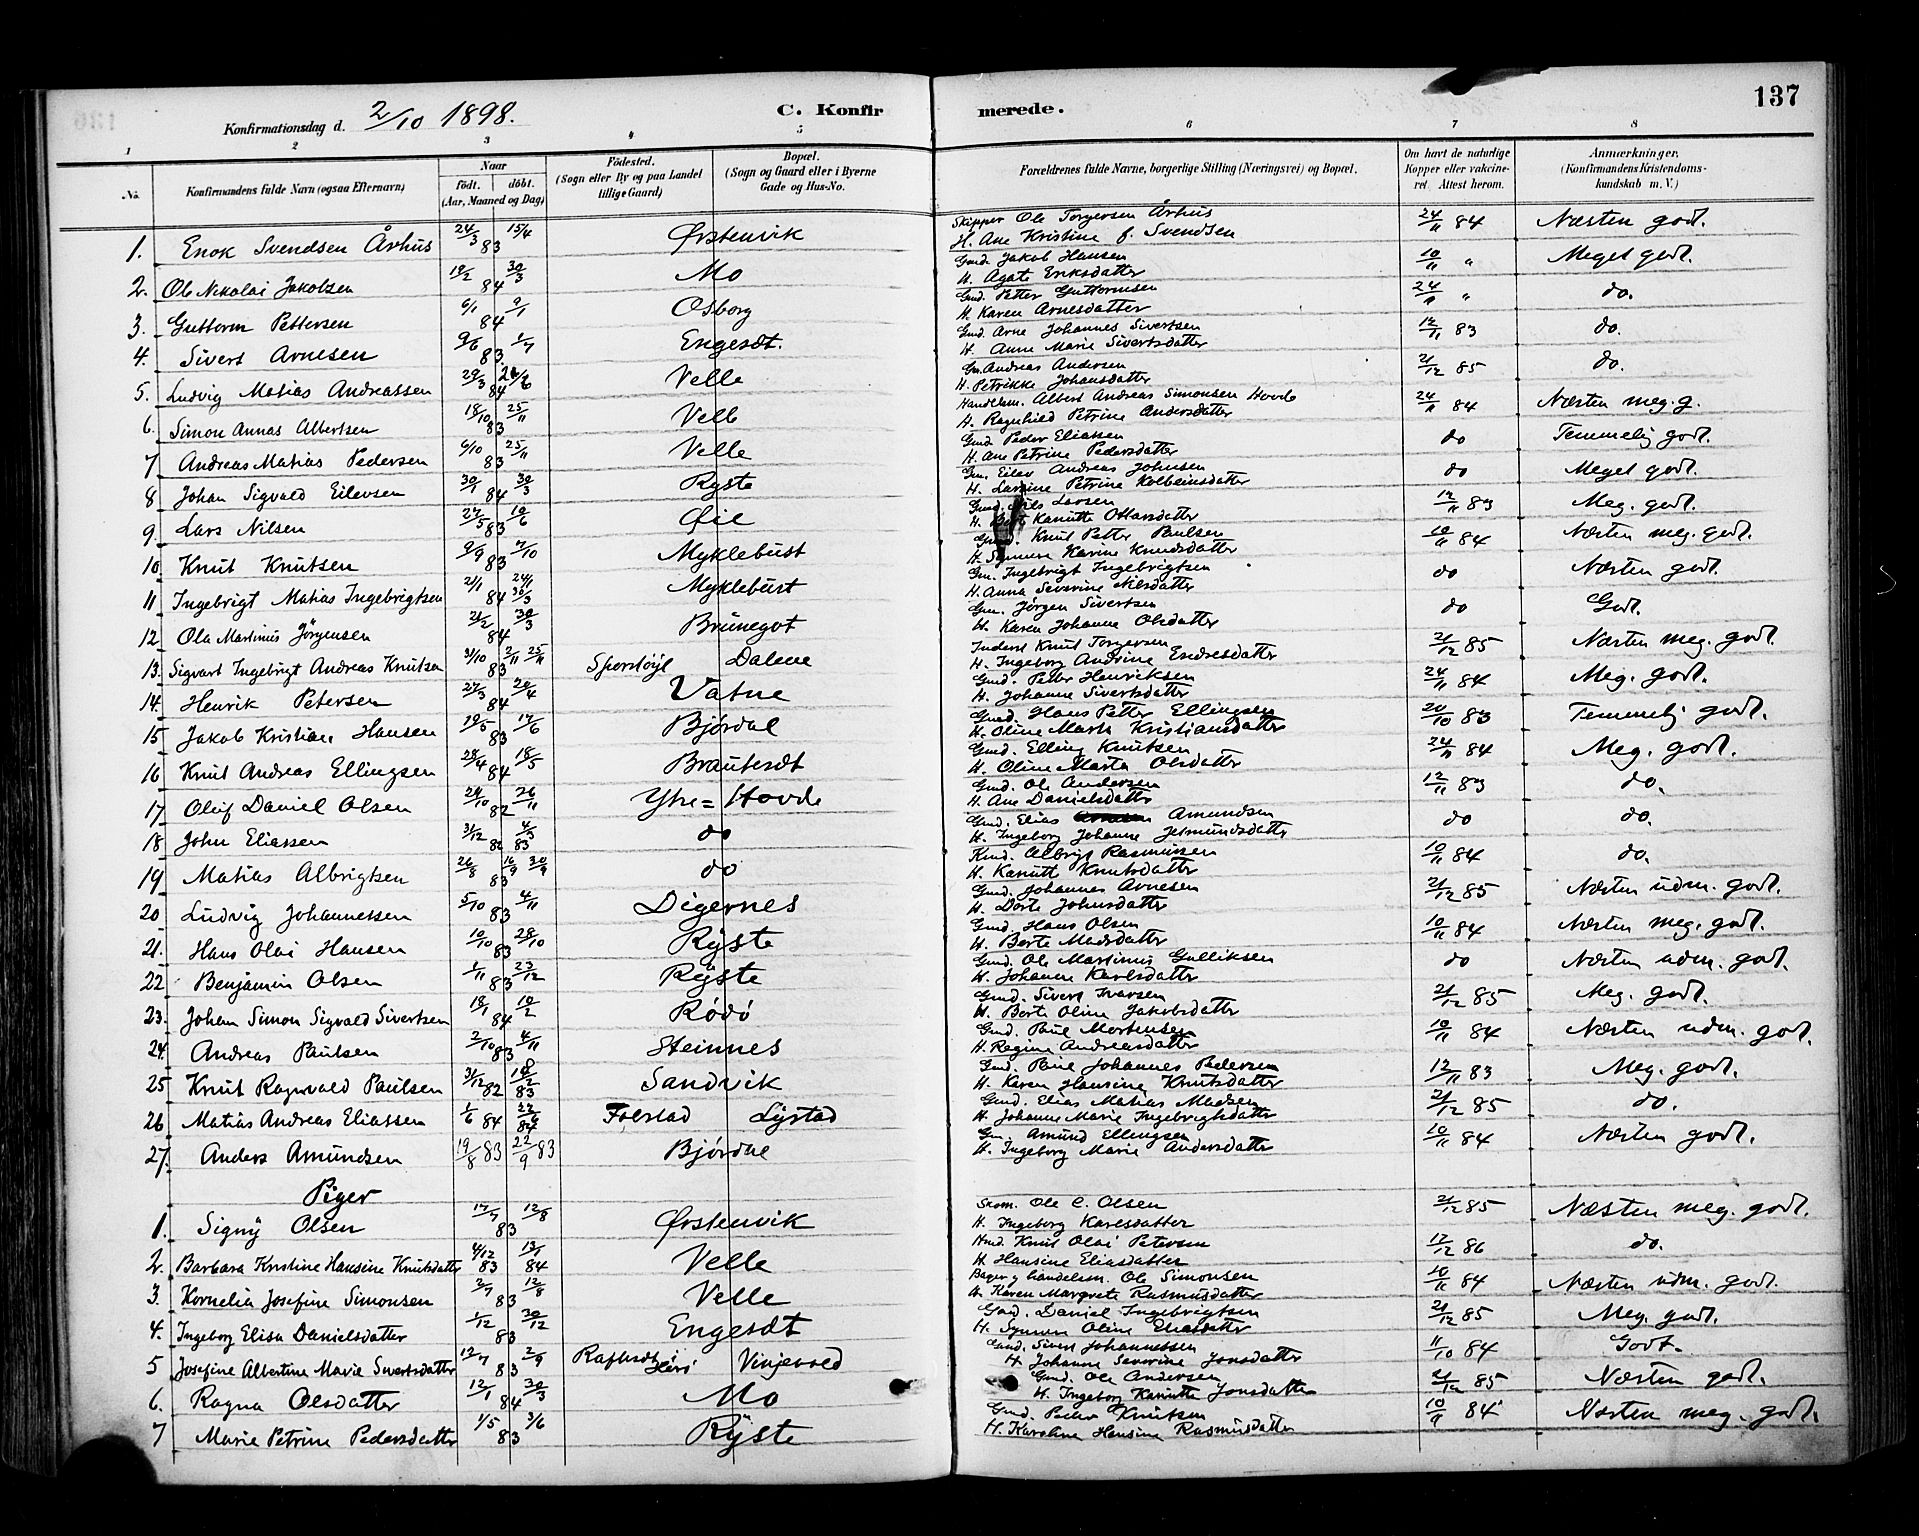 137
Konfirmationsdag d. 2/10 1898.
C. Konfirmerede.
1 2 3 4 5 6 7 8
No.
Konfirmandens fulde Navn (ogsaa Efternavn)
Naar
født. døbt.
(Aar, Maaned og Dag)
Födested.
(Sogn eller By og paa Landet tillige Gaard)
Bopæl.
(Sogn og Gaard eller i Byerne Gade og Hus-No.
Forældrenes fulde Navne, borgerlige Stilling (Næringsvei) og Bopæl.
Om havt de naturlige Kopper eller vakcineret. Attest herom.
Anmærkninger.
(Konfirmandens Kristendomskundskab m. V.)
1. Enok Svendsen Århus 24/3 83 15/4 Ørstenvik Skipper Ole Torgersen Århus 24/11 84 Næsten godt.
H. Ane Kristine f. Svendsen
2. Ole Nikolai Jakobsen 19/2 84 30/3 Mo Gmd. Jakob Hansen 10/11 " Meget godt.
H. Agate Eriksdatter
3. Guttorm Pettersen 6/1 84 9/1 Osborg Gmd. Petter Guttormsen 24/11 " do.
H. Karen Arnesdatter
4. Sivert Arnesen 9/6 83 1/7 Engesæt. Gmd. Arne Johannes Sivertsen 12/11 83 do.
H. Anne Marie Sivertsdatter
5. Ludvig Matias Andreassen 29/3 84 Velle Gm. Andreas Andersen 21/12 85 do.
H. Petrikke Johansdatter
6. Simon Annas Albertsen 18/10 83 25/11 Velle Handelsm. Albert Andreas Simonsen Hovde 24/11 84 Næsten meg. g.
H. Ragnhild Petrine Andersdatter
7 Andreas Matias Pedersen 6/10 83 25/11 Velle Gmd. Peder Eliassen do Temmelig godt.
H. Ane Petrine Pedersdatter
8 Johan Sigvald Eilevsen 30/1 84 30/3 Ryste Gm. Eilev Andreas Johnsen do Meget godt.
H. Lavrine Petrine Kolbeinsdatter
9. Lars Nilsen 27/5 83 10/6 Øie Gmd. Nils Larsen 12/11 83 Meg. godt.
H. Kanutte Ottarsdatter
10 Knut Knutsen 9/9 83 7/10 Myklebust Gmd. Knut Petter Paulsen 10/11 84 Næsten meg. godt.
H. Synnøve Karine Knudsdatter
11 Ingebrigt Matias Ingebrigtsen 21/1 84 24/1 30/3 Myklebust Gm. Ingebrigt Ingebrigtsen do Næsten godt.
H. Anna Severine Nilsdatter
12 Ola Martinus Jørgensen 21/2 84 30/3 Brunegot Gm. Jørgen Sivertsen do Godt.
H. Karen Johanne Olsdatter
13. Sigvart Ingebrigt Andreas Knutsen 31/10 83 2/11 25/11 Sporstøyl Dalene Inderst Knut Torgersen 21/12 85 Næsten meg. godt.
H. Ingeborg Andrine Endresdatter
14. Henrik Petersen 27/3 84 20/4 Vatne Gmd. Petter Henriksen 24/11 84 Meg. godt.
H. Johanne Sivertsdatter
15 Jakob Kristian Hansen 19/5 83 17/6 Bjørdal Gmd. Hans Petter Ellingsen 20/10 83 Temmelig godt.
H. Oline Marta Kristiansdatter
16 Knut Andreas Ellingsen 28/4 84 18/5 Brautesæt Gmd. Elling Knutsen 24/11 84 Meg. godt.
H. Oline Marta Olsdatter
17 Oluf Daniel Olsen 24/10 82 26/11 Ytre=Hovde Gmd. Ole Andersen 12/11 83 do.
H. Ane Danielsdatter
18 John Eliassen 31/12 82 4/3 83 do Gmd. Elias Amundsen do do.
H. Ingeborg Johanne Jetmundsdatter
19 Matias Albrigtsen 26/8 83 16/9 30/9 do Kmd. Albrigt Rasmussen 10/11 84 do.
H. Kanutt Knutsdatter
20 Ludvig Johannessen 5/10 83 4/11 Digernes Gmd. Johannes Arnesen 21/12 85 Næsten udm. godt.
H. Dorte Johnsdatter
21. Hans Olai Hansen 10/10 83 28/10 Ryste Gmd. Hans Olsen 10/11 84 Næsten meg. godt.
H. Berte Madsdatter
22 Benjamin Olsen 1/11 83 23/12 Ryste Gmd. Ole Martinus Gulliksen do Næsten udm. godt.
H. Johanne Karlsdatter
23. Johan Simon Sigvald Sivertsen 18/1 84 10/2 Rødø Gmd. Sivert Ivarsen 21/12 85 Meg. godt.
H. Berte Oline Jakobsdatter
24. Andreas Paulsen 2/10 83 4/11 Steinnes Gmd. Paul Mortensen 10/11 84 Næsten udm. godt.
H. Regine Andreasdatter
25 Knut Ragnvald Paulsen 31/12 82 18/2 83 Sandvik Gmd. Paul Johannes Pedersen 12/11 83 Meg. godt.
H. Karen Hansine Knutsdatter
26 Matias Andreas Eliassen 1/6 84 22/6 84 Folestad Lystad Gmd. Elias Matias Madsen 21/12 85 do.
H. Johanne Marie Ingebrigtsdatter
27. Anders Amundsen 19/8 83 22/9 83 Bjørdal Gm. Amund Ellingsen 10/11 84 Næsten godt.
H. Ingeborg Marie Andersdatter
Piger
1. Signy Olsen 17/7 83 12/8 Ørstenvik Skom. Ole C. Olsen 21/12 85 Næsten meg. godt.
H. Ingeborg Karlsdatter
2. Barbara Kristine Hansine Knutsdatter 4/12 83 13/1 84 Velle Hmd. Knut Olai Petersen 17/12 86 do.
H. Hansine Eliasdatter
3. Kornelia Josefine Simonsen 2/7 83 12/8 Velle Bager og handelsm. Ole Simonsen 10/11 84 Næsten udm. godt.
H. Karen Margrete Rasmusdatter
4. Ingeborg Elisa Danielsdatter 1/12 83 30/12 Engesæt Gmd. Daniel Ingebrigtsen 21/12 85 Meg. godt.
H. Synnøve Oline Eliasdatter
5 Josefine Albertine Marie Sivertsdatter 12/7 83 2/9 Herø Vinjevold Gmd. Sivert Johannessen 11/10 84 Godt.
H. Johanne Severine Jonsdatter
6. Ragna Olsdatter 12/1 84 30/3 Mo Gmd. Ole Andersen 21/12 85 Næsten godt.
H. Ingeborg Kanutta Jonsdatter
7 Marie Petrine Pedersdatter 1/5 83 3/6 Ryste Gmd. Peder Knutsen 10/11 84 Næsten meg. godt.
H. Karoline Hansine Rasmusdatter